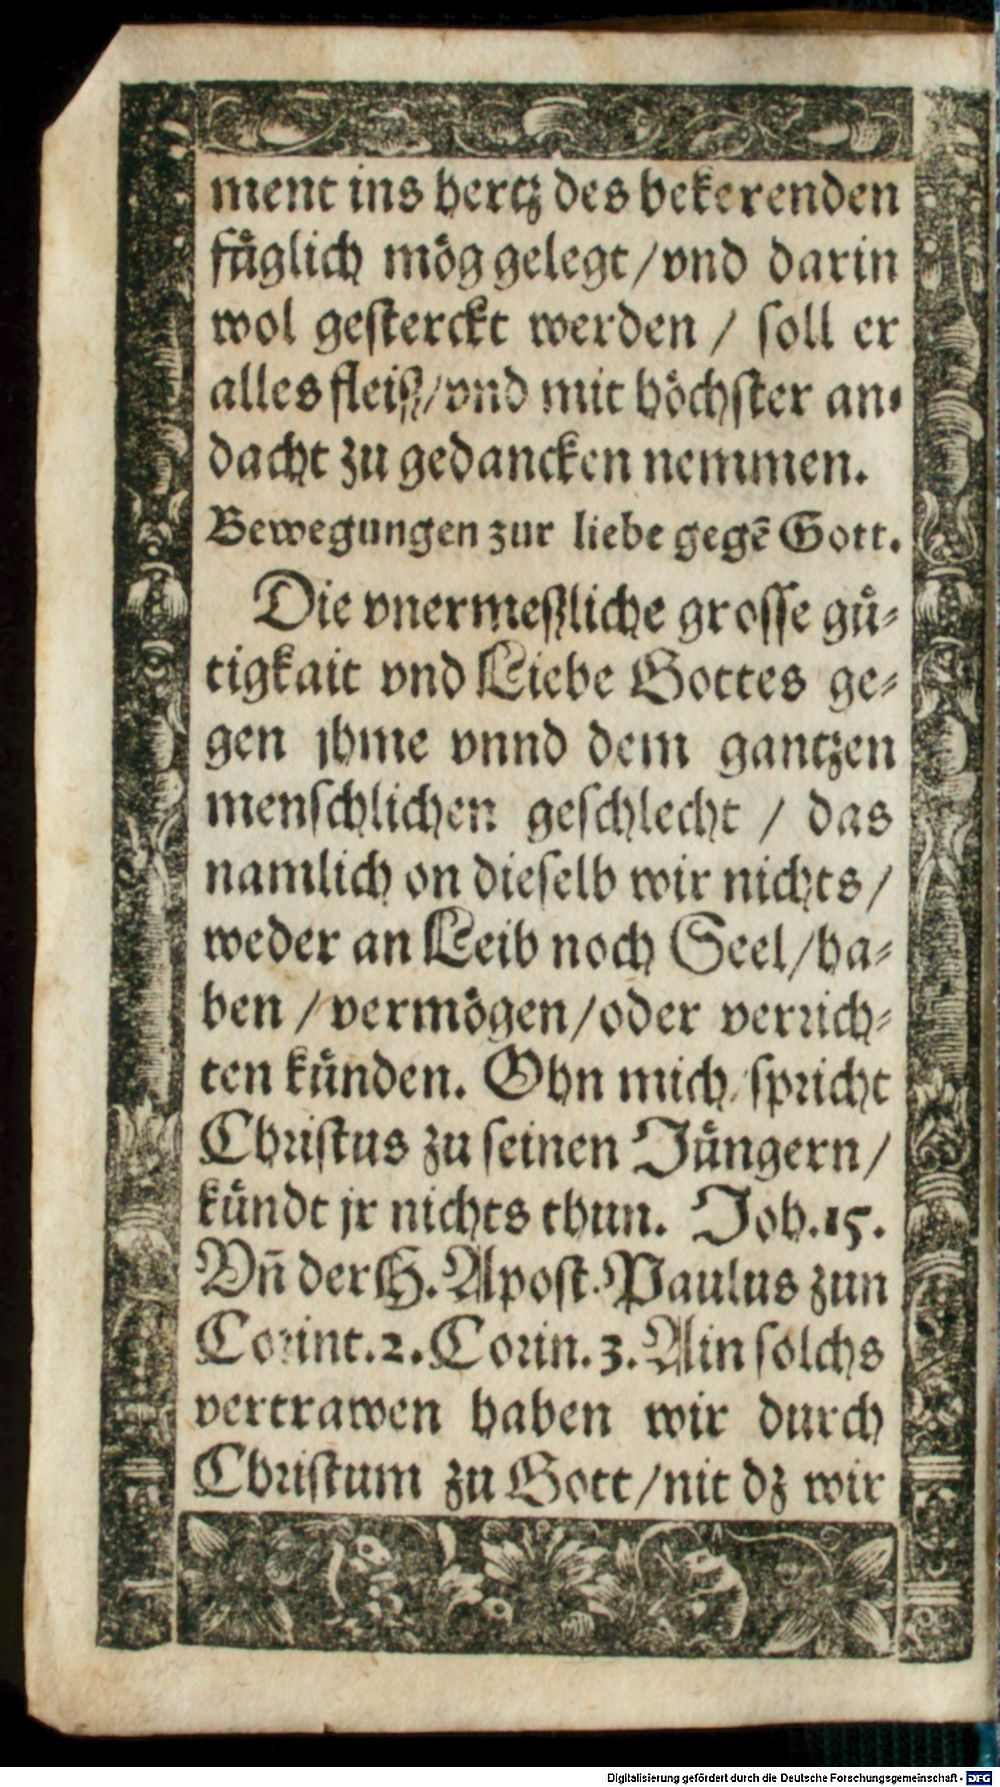 ment ins hertz des bekerenden
fuͤglich moͤg gelegt / vnd darin
wol gesterckt werden / soll er
alles fleiß / vnd mit hoͤchster an⸗
dacht zu gedancken nemmen.
Bewegungen zur liebe gegē Gott.
Die vnermeßliche grosse guͤ⸗
tigkait vnd Liebe Gottes ge⸗
gen jhme vnnd dem gantzen
menschlichen geschlecht / das
namlich on dieselb wir nichts /
weder an Leib noch Seel / ha⸗
ben / vermoͤgen / oder verrich⸗
ten kuͤnden. Ohn mich / spricht
Christus zu seinen Juͤngern /
kuͤndt jr nichts thun. Joh. 15.
Vn̄ der H. Apost. Paulus zun
Corint. 2. Corin. 3. Ain solchs
vertrawen haben wir durch
Christum zu Gott / nit dz wir
Digitalisierung gefördert durch die Deutsche Forschungsgemeinschaft - DFG